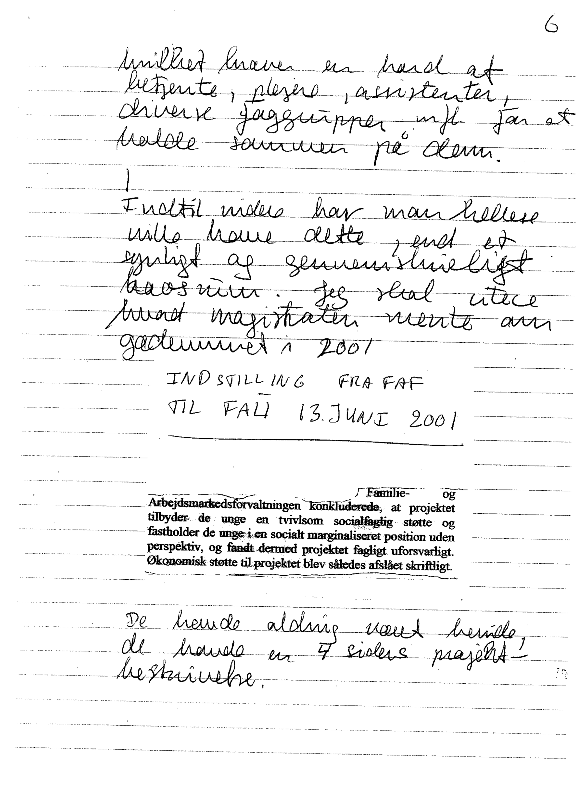 6
hvilket kræver en hærd af
betjente, plejere, assistenter,
diverse faggrupper mfl for at
holde sammen på dem.
Indtil videre har man hellere
ville have dette, end et
synligt og gennemskueligt
kaosrum. Jeg skal citere
hvad magistraten mente om
gaderummet i 2001
INDSTILLING FRA FAF
TIL FAU 13. JUNI 2001
Familie- og
Arbejdsmarkedsforvaltningen konkluderede, at projektet
tilbyder de unge en tvivlsom socialfaglig støtte og
fastholder de unge i en socialt marginaliseret position uden
perspektiv, og fandt dermed projektet fagligt uforsvarligt.
Økonomisk støtte til projektet blev således afslået skriftligt.
De havde aldrig været henne,
de havde en 7 siders projekt-
beskrivelse.